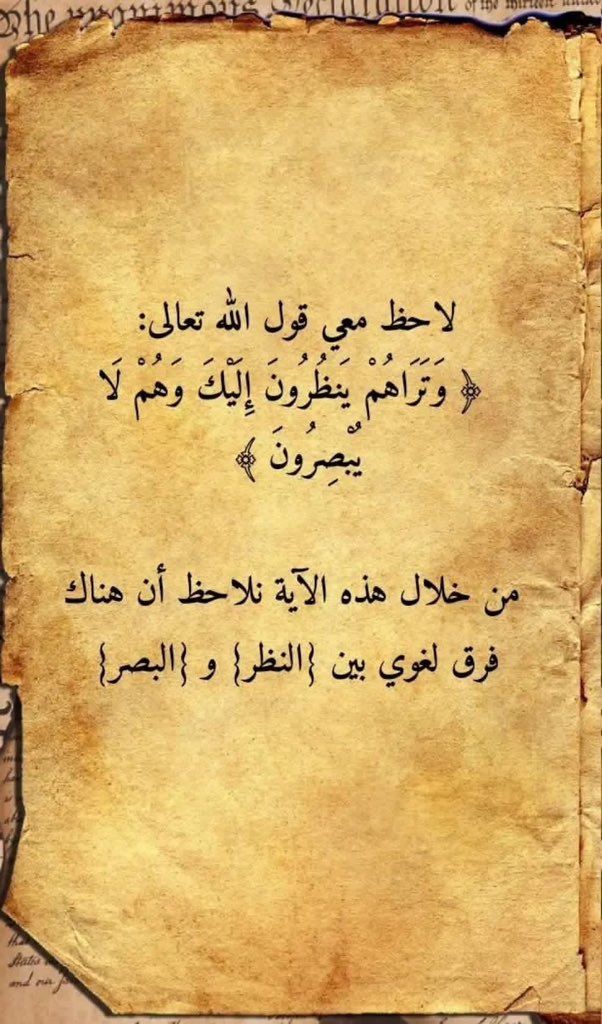 The unanimous Declaration of the thirteen united
لاحظ معي قول الله تعالى:
﴿ وَتَرَاهُمْ يَنظُرُونَ إِلَيْكَ وَهُمْ لَا
يُبْصِرُونَ ﴾
من خلال هذه الآية نلاحظ أن هناك
فرق لغوي بين {النظر} و {البصر}